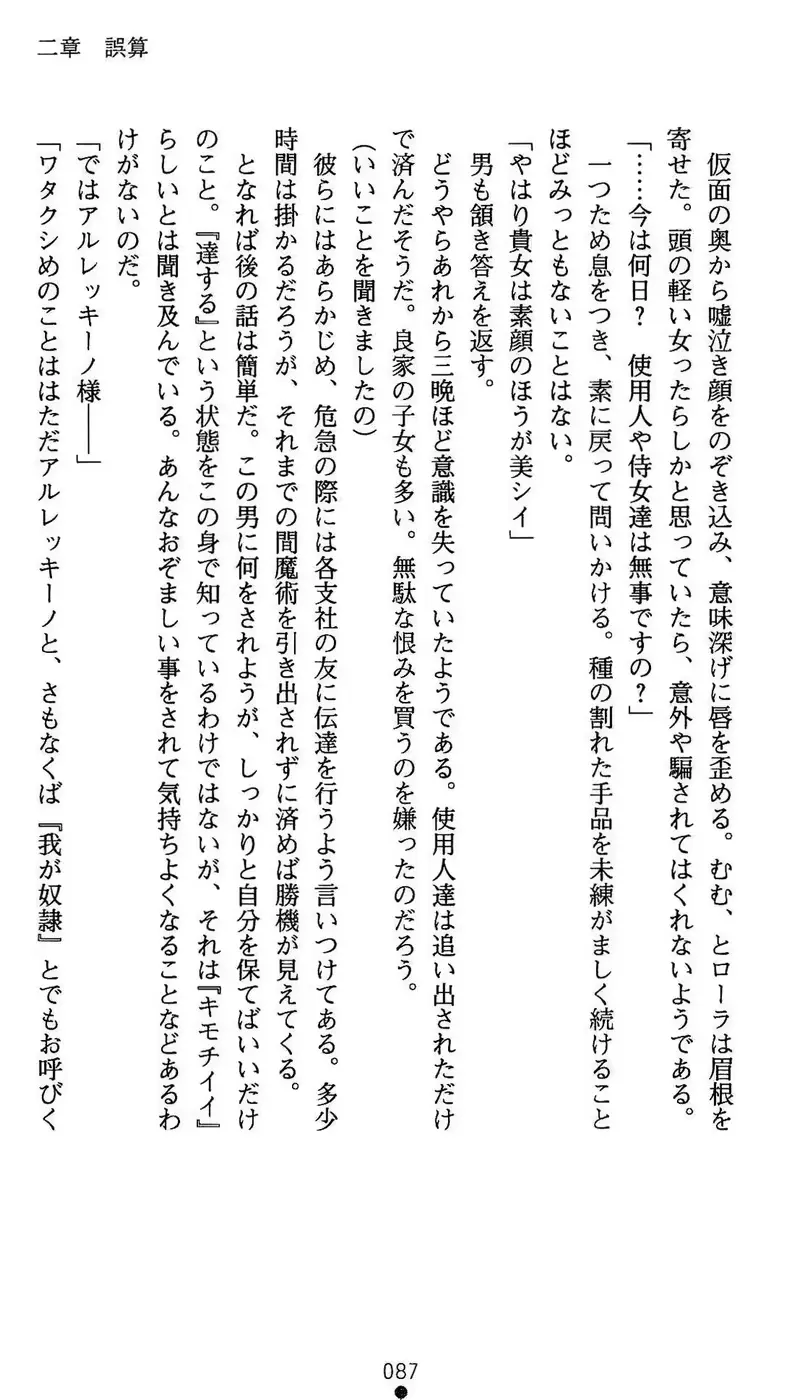 二章　誤算
　仮面の奥から嘘泣き顔をのぞき込み、意味深げに唇を歪める。むむ、とローラは眉根を
寄せた。頭の軽い女ったらしかと思っていたら、意外や騙されてはくれないようである。
「……今は何日？　使用人や侍女達は無事ですの？」
　一つため息をつき、素に戻って問いかける。種の割れた手品を未練がましく続けること
ほどみっともないことはない。
「やはり貴女は素顔のほうが美シイ」
　男も頷き答えを返す。
　どうやらあれから三晩ほど意識を失っていたようである。使用人達は追い出されただけ
で済んだそうだ。良家の子女も多い。無駄な恨みを買うのを嫌ったのだろう。
（いいことを聞きましたの）
　彼らにはあらかじめ、危急の際には各支社の友に伝達を行うよう言いつけてある。多少
時間は掛かるだろうが、それまでの間魔術を引き出されずに済めば勝機が見えてくる。
　となれば後の話は簡単だ。この男に何をされようが、しっかりと自分を保てばいいだけ
のこと。『達する』という状態をこの身で知っているわけではないが、それは『キモチイイ』
らしいとは聞き及んでいる。あんなおぞましい事をされて気持ちよくなることなどあるわ
けがないのだ。
「ではアルレッキーノ様――」
「ワタクシめのことははただアルレッキーノと、さもなくば『我が奴隷』とでもお呼びく
087